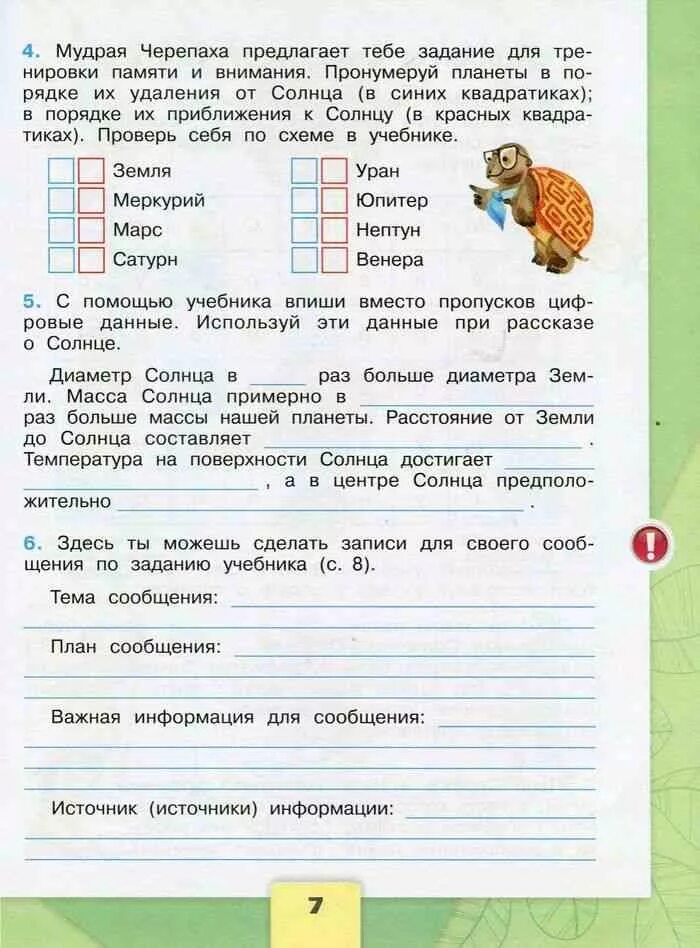 4. Мудрая Черепаха предлагает тебе задание для тре-
нировки памяти и внимания. Пронумеруй планеты в по-
рядке их удаления от Солнца (в синих квадратиках);
в порядке их приближения к Солнцу (в красных квадра-
тиках). Проверь себя по схеме в учебнике.
Земля
Меркурий
Марс
Сатурн
Уран
Юпитер
Нептун
Венера
5. С помощью учебника впиши вместо пропусков циф-
ровые данные. Используй эти данные при рассказе
о Солнце.
Диаметр Солнца в раз больше диаметра Зем-
ли. Масса Солнца примерно в
раз больше массы нашей планеты. Расстояние от Земли
до Солнца составляет .
Температура на поверхности Солнца достигает
, а в центре Солнца предполо-
жительно .
6. Здесь ты можешь сделать записи для своего сооб-
щения по заданию учебника (с. 8).
Тема сообщения:
План сообщения:
Важная информация для сообщения:
Источник (источники) информации:
!
7